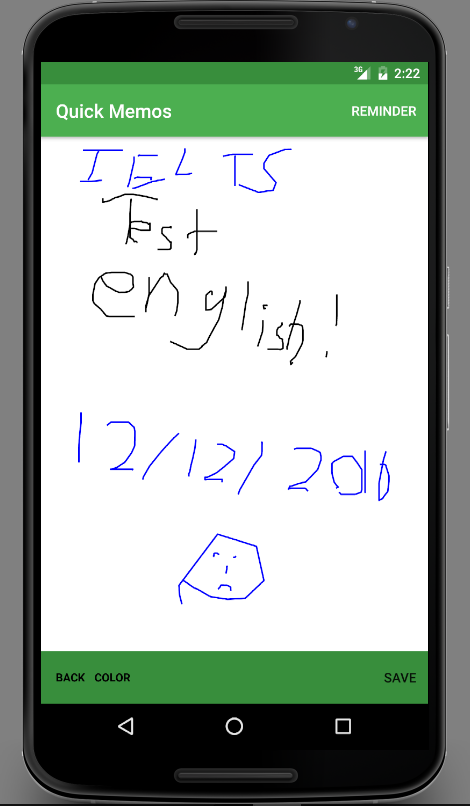 36 2:22
Quick Memos REMINDER
IELTS
Test
english!
12/12/2016
BACK COLOR SAVE